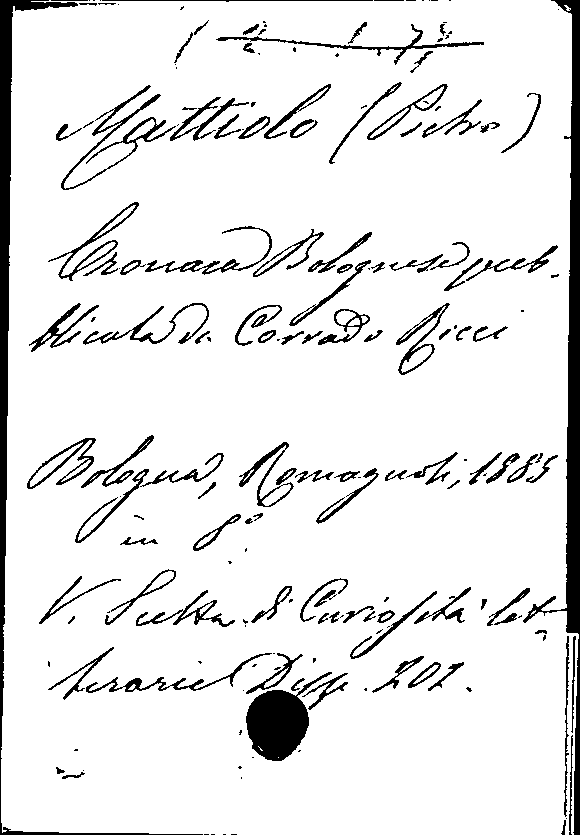 Mattiolo (Pietro)
Cronaca Bolognese pub-
blicata da Corrado Ricci
Bologna, Romagnoli, 1885
in 8º
V. Scelta di Curiosità let-
terarie Disp. 202.